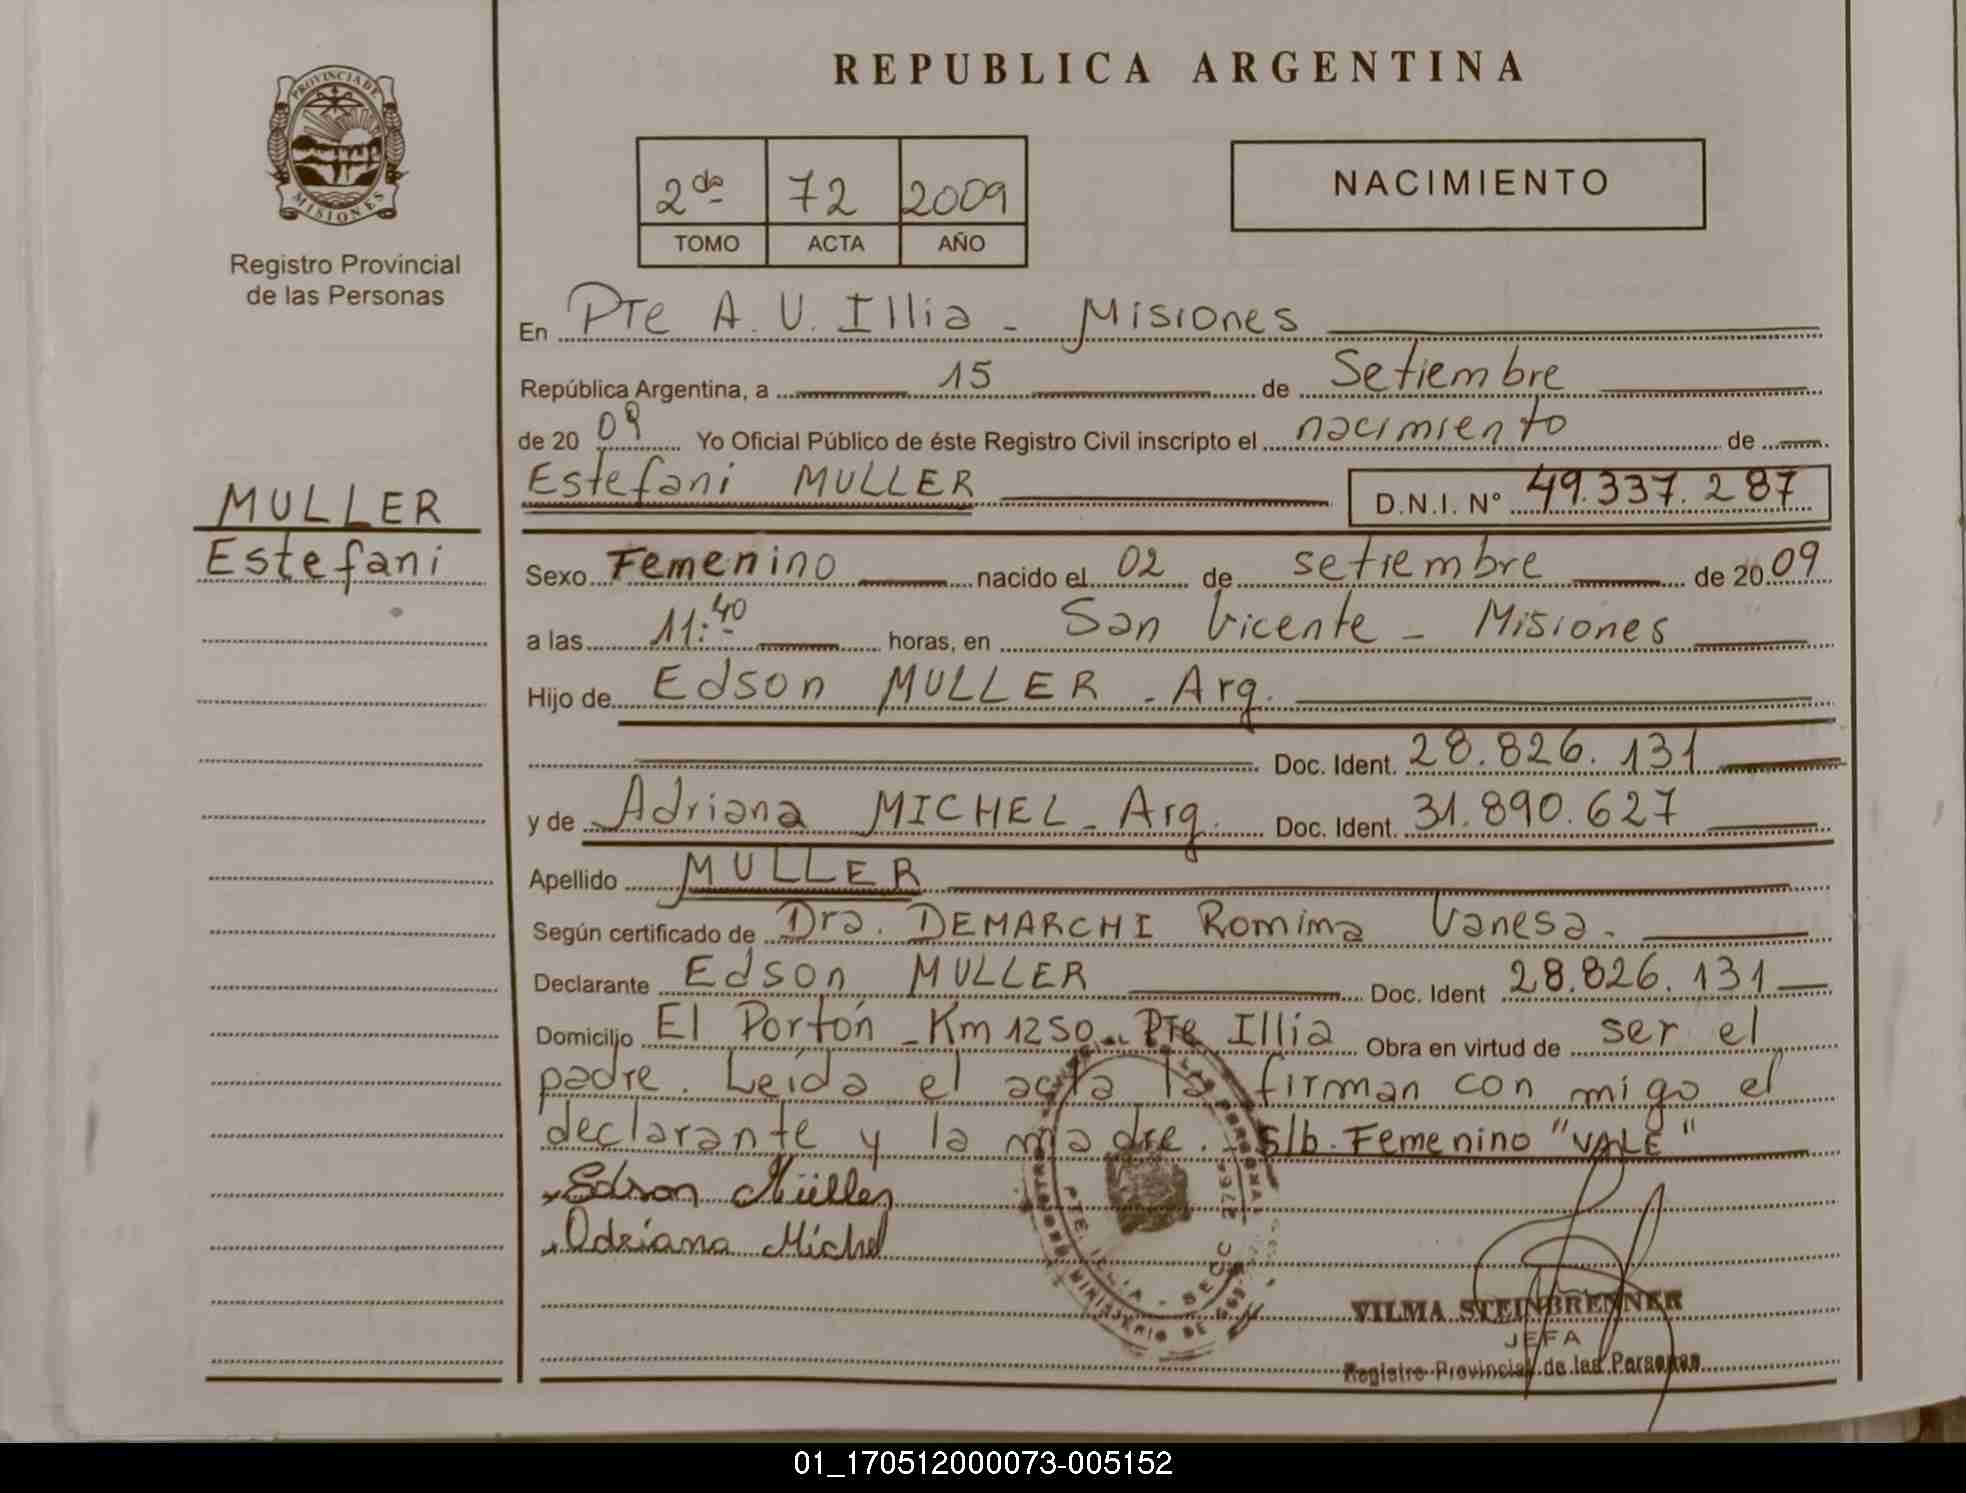 PROVINCIA DE
MISIONES
Registro Provincial
de las Personas
MULLER
Estefani
REPUBLICA ARGENTINA
2da 72 2009
TOMO ACTA AÑO
NACIMIENTO
En Pte A. U. Illia - Misiones
República Argentina, a 15 de Setiembre
de 20 09 Yo Oficial Público de éste Registro Civil inscripto el nacimiento de
Estefani MULLER D.N.I. N° 49.337.287
Sexo Femenino nacido el 02 de setiembre de 20 09
a las 11:40 horas, en San Vicente - Misiones
Hijo de Edson MULLER - Arg.
Doc. Ident. 28.826.131
y de Adriana MICHEL - Arg. Doc. Ident. 31.890.627
Apellido MULLER
Según certificado de Dra. DEMARCHI Romina Vanesa.
Declarante Edson MULLER Doc. Ident 28.826.131
Domicilio El Portón - Km 1250 - Pte Illia Obra en virtud de ser el
padre. Leída el acta la firman con migo el
declarante y la madre. S/b. Femenino "VALE"
Edson Müller
Adriana Michel
PTE. ILLIA - SECC
MINISTERIO DE GOB
VILMA STEINBRENNER
JEFA
Registro Provincial de las Personas
01_170512000073-005152